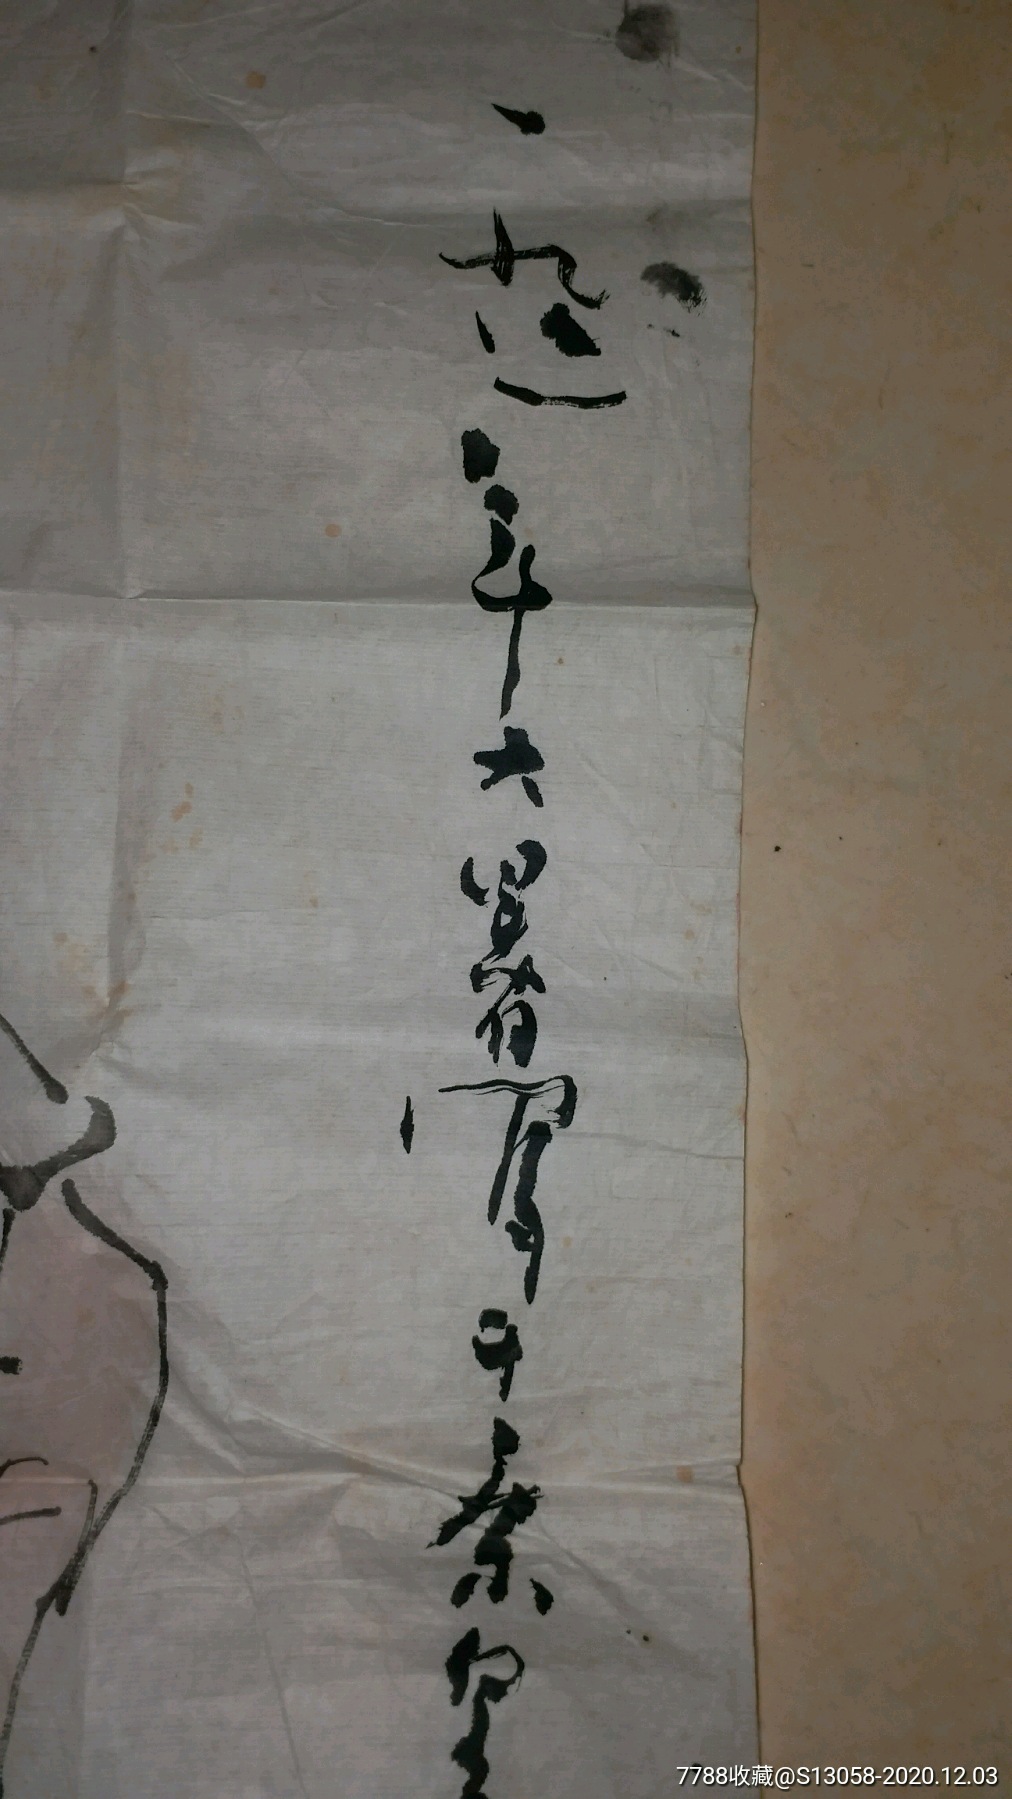 一九八一年大暑寫于秦皇
7788收藏@S13058-2020.12.03